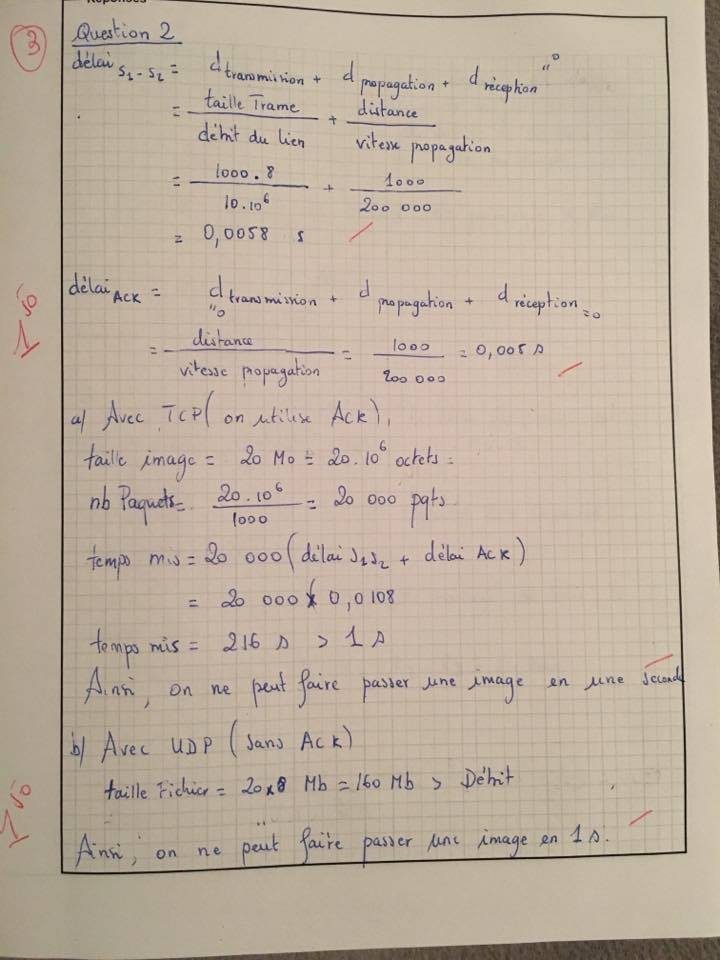 Réponses
3
Question 2
délai S1-S2 = d transmission + d propagation + d réception "0
= taille Trame / débit du lien + distance / vitesse propagation
= 1000.8 / 10.10^6 + 1000 / 200 000
= 0,0058 s
1 50
délai ACK = d transmission "0 + d propagation + d réception =0
= distance / vitesse propagation = 1000 / 200 000 = 0,005 s
a) Avec TCP (on utilise Ack),
taille image = 20 Mo = 20.10^6 octets =
nb Paquets = 20.10^6 / 1000 = 20 000 pqts
temps mis = 20 000 (délai S1S2 + délai Ack)
= 20 000 x 0,0108
temps mis = 216 s > 1 s
Ainsi, on ne peut faire passer une image en une seconde
b) Avec UDP (sans Ack)
taille Fichier = 20x8 Mb = 160 Mb > Débit
1 50
Ainsi, on ne peut faire passer une image en 1 s.